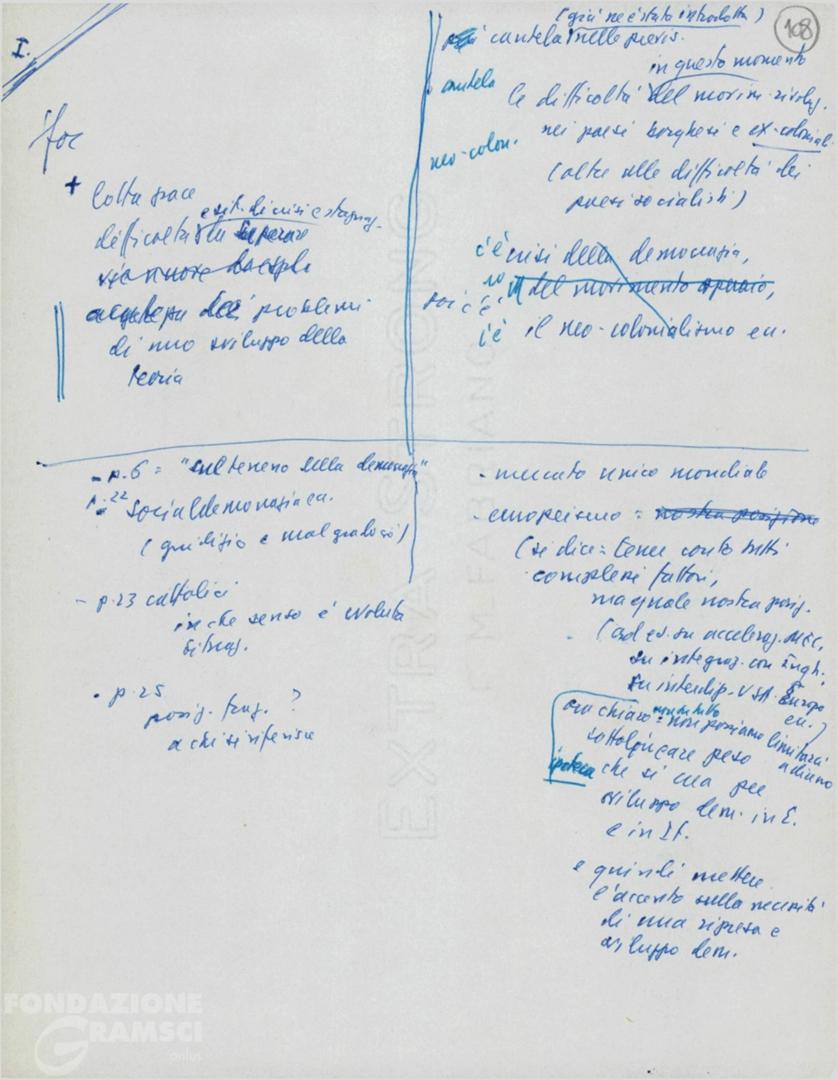 I.
108
foc
+ lotta pace
e sit. di crisi e stagnaz.
difficoltà da superare
acutezza dei problemi
di uno sviluppo della
teoria
(già ne è stata introdotta)
più cautela nelle previs.
in questo momento
cautela
le difficoltà del movim. rivoluz.
nei paesi borghesi e ex-coloniali
neo-colon.
(oltre alle difficoltà dei
paesi socialisti)
c'è crisi della democrazia,
del movimento operaio,
c'è il neo-colonialismo ecc.
- p. 6 = "sul terreno della democrazia"
- p. 22 socialdemocrazia ecc.
(giudizio e mal grado ciò)
- p. 23 cattolici
in che senso è evoluta
situaz.
- p. 25
posiz. fraz. ?
a chi si riferisce
- mercato unico mondiale
- europeismo = nostra posizione
(si dice = tener conto tutti
complessi fattori,
ma quale nostra posiz.
(ad es. su acceleraz. MEC,
su integraz. con Ingh.,
su interdip. USA-Europa
ecc.)
ora chiaro = non possiamo limitarci
sottolineare peso
ipoteca che si crea per
sviluppo dem. in E.
e in It.
e quindi mettere
l'accento sulla necessità
di una ripresa e
sviluppo dem.
EXTRA STRONG
FABRIANO
FONDAZIONE
GRAMSCI
onlus